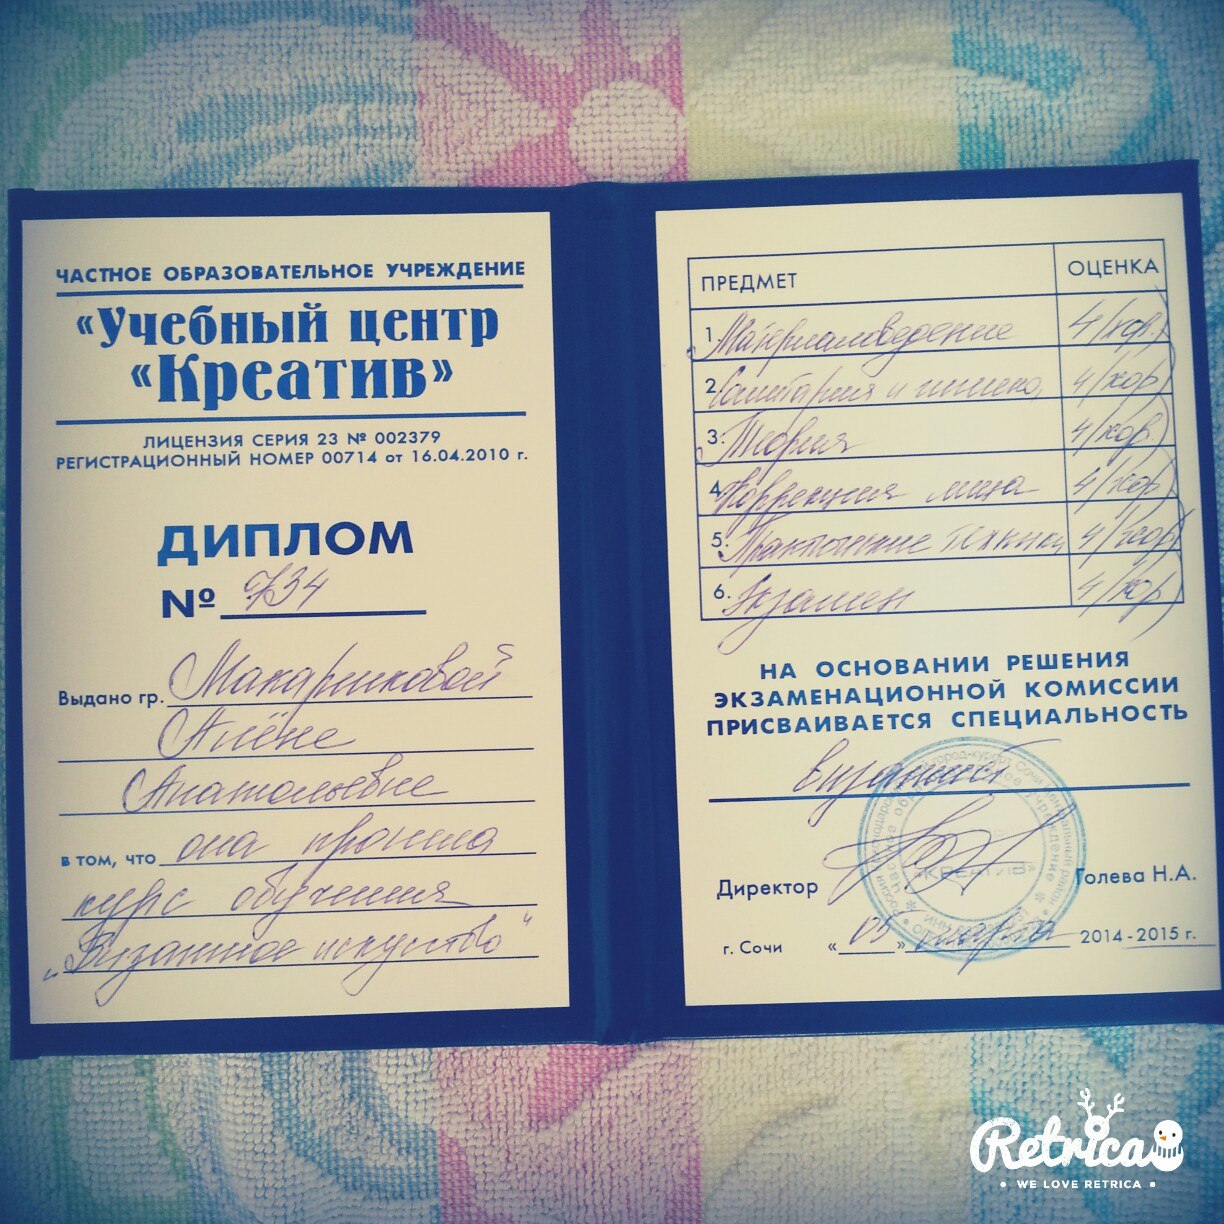 ЧАСТНОЕ ОБРАЗОВАТЕЛЬНОЕ УЧРЕЖДЕНИЕ
«Учебный центр
«Креатив»
ЛИЦЕНЗИЯ СЕРИЯ 23 № 002379
РЕГИСТРАЦИОННЫЙ НОМЕР 00714 от 16.04.2010 г.
ДИПЛОМ
№ 734
Выдано гр. Макариковой
Алёне
Анатольевне
в том, что она прошла
курс обучения
„Визажное искусство"
ПРЕДМЕТ ОЦЕНКА
1. Материаловедение 4/хор)
2. Санитария и гигиена 4/хор)
3. Теория 4/хор)
4. Коррекция лица 4/хор)
5. Практические техники 4/хор)
6. Экзамен 4/хор)
НА ОСНОВАНИИ РЕШЕНИЯ
ЭКЗАМЕНАЦИОННОЙ КОМИССИИ
ПРИСВАИВАЕТСЯ СПЕЦИАЛЬНОСТЬ
визажист
Директор Голева Н.А.
«КРЕАТИВ»
г. Сочи «05» марта 2014-2015 г.
Retrica
• WE LOVE RETRICA •